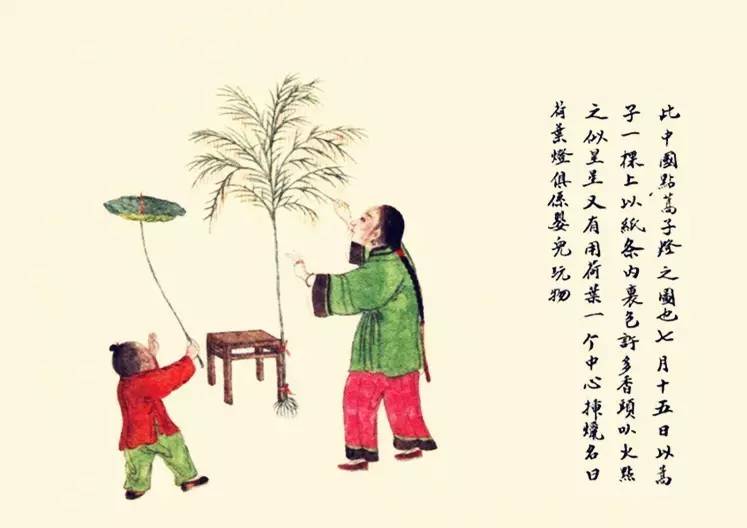 此中國點蒿子燈之圖也七月十五日以蒿
子一棵上以紙条內裹包許多香頭以火點
之似呈星又有用荷葉一个中心揷蠟名曰
荷葉燈俱係嬰兒玩物